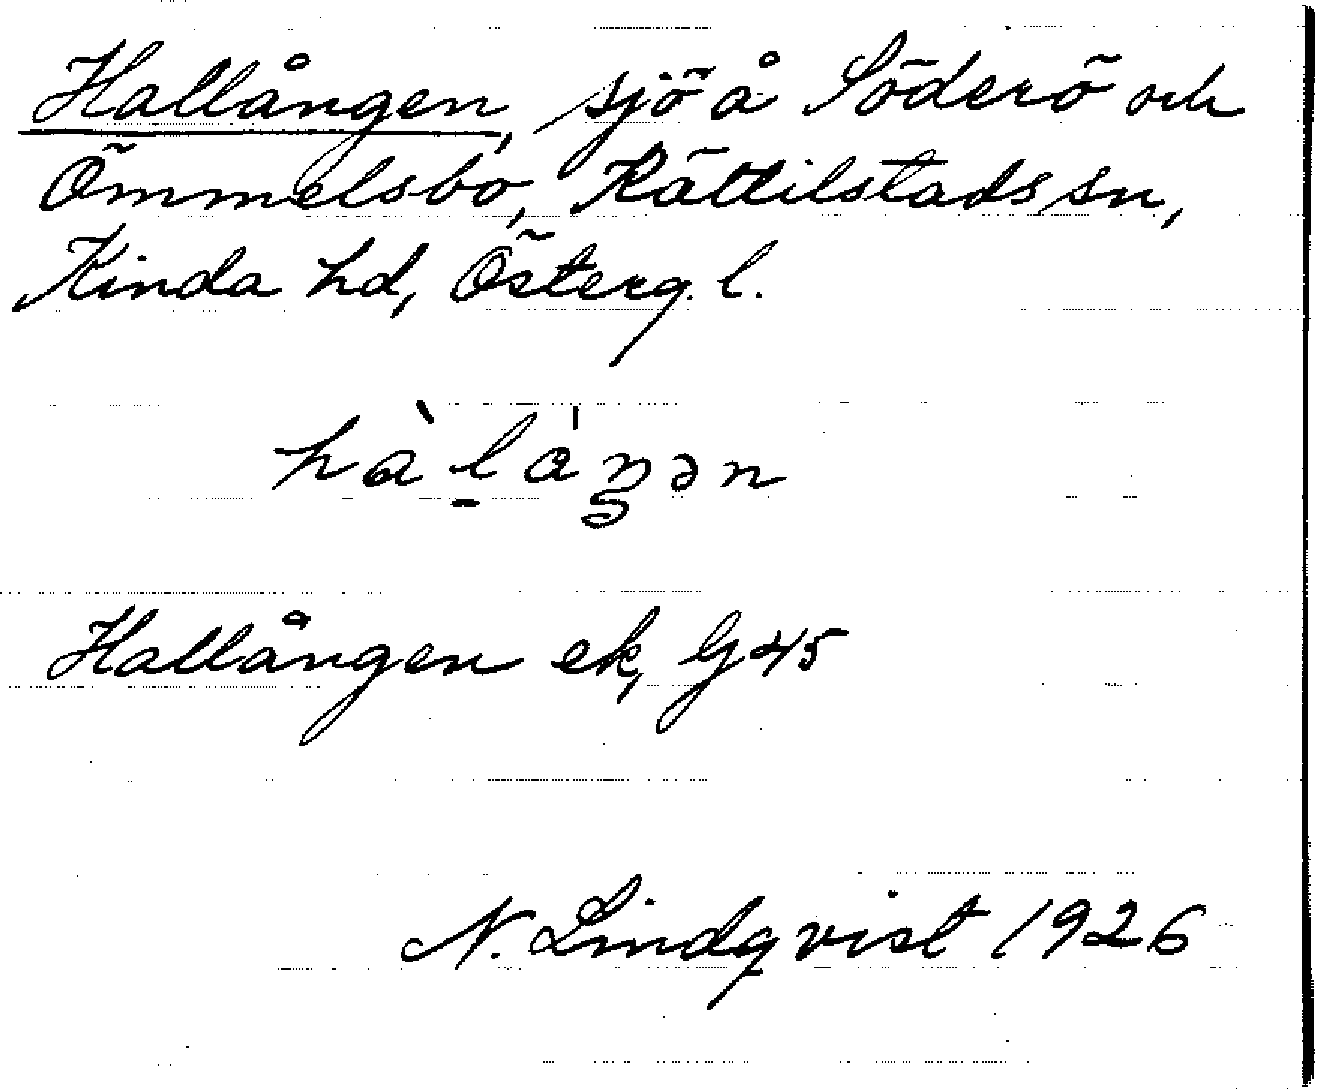 Hallången, sjö å Söderö och
Ömmelsbo, Kättilstads sn,
Kinda hd, Österg. l.
hàla̍ŋən
Hallången ek, G 45
N. Lindqvist 1926